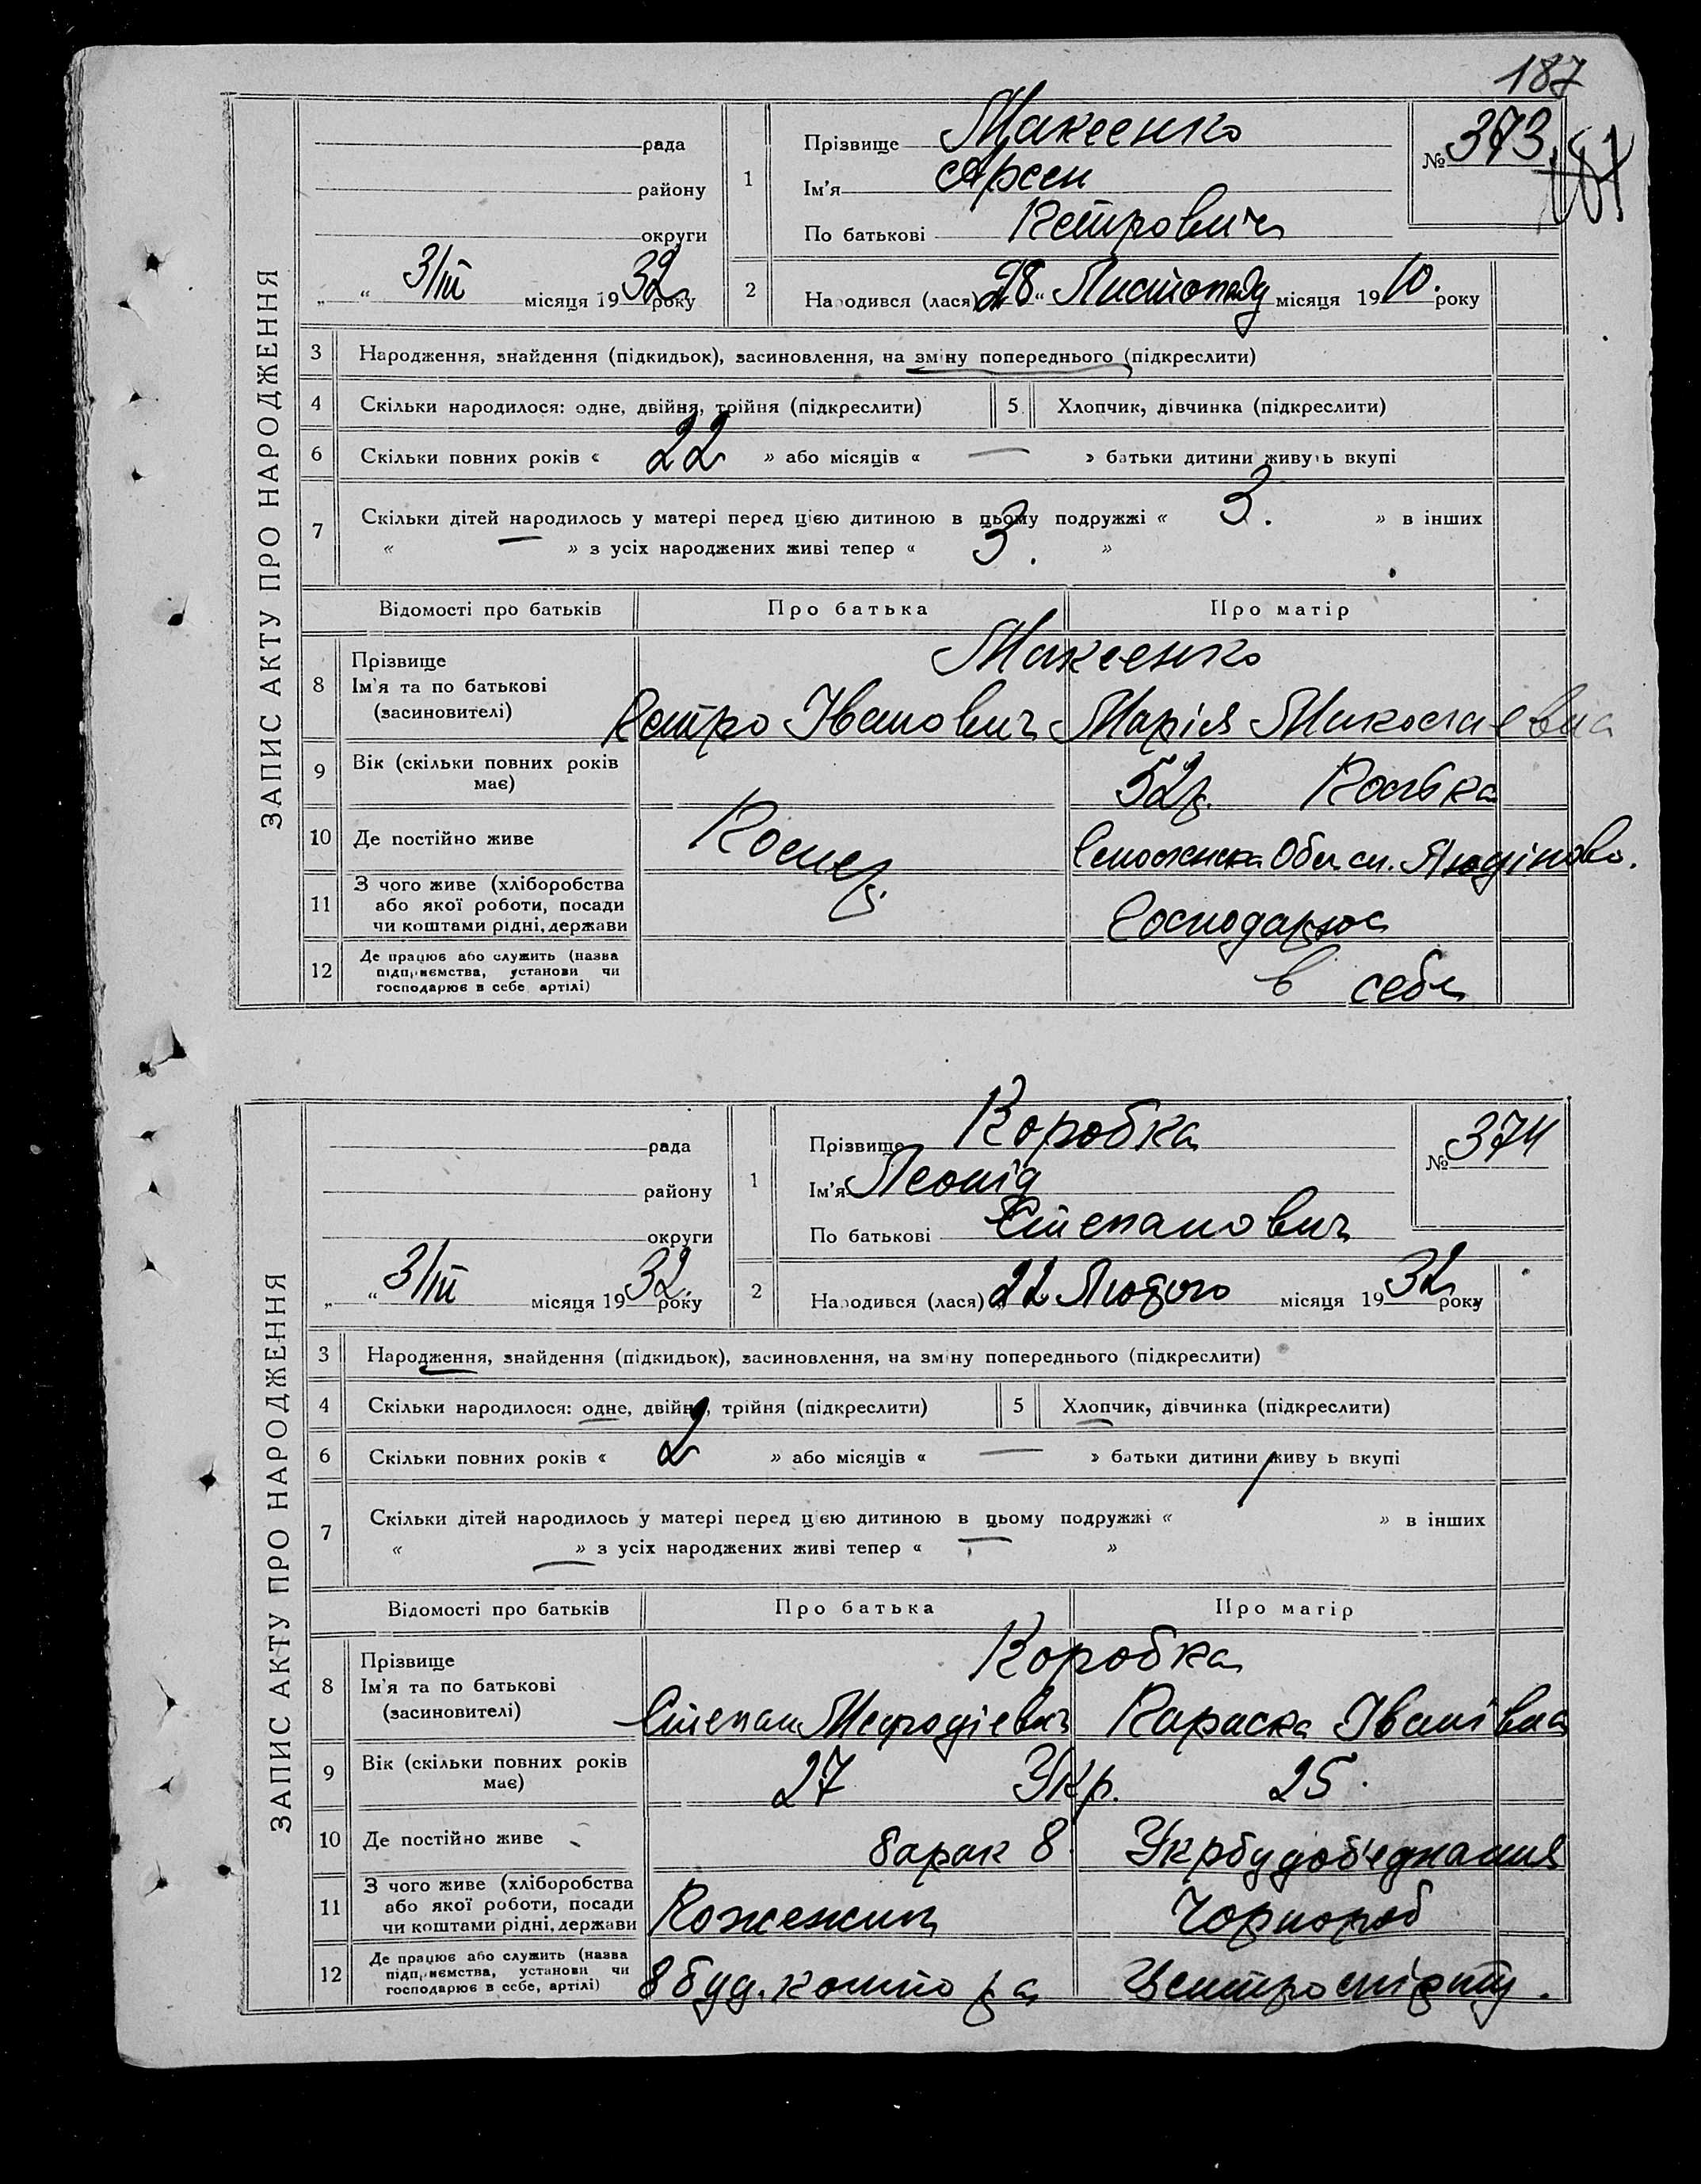 187
ЗАПИС АКТУ ПРО НАРОДЖЕННЯ
рада
району
округи
„ “ 3/III місяця 1932 року
1
Прізвище Макеенко
Ім'я Арсен
По батькові Петрович
№ 373.
2 Народився (лася) 28 “ Листопаду місяця 1910. року
3 Народження, знайдення (підкидьок), засиновлення, на зміну попереднього (підкреслити)
4 Скільки народилося: одне, двійня, трійня (підкреслити) 5 Хлопчик, дівчинка (підкреслити)
6 Скільки повних років « 22 » або місяців « — » батьки дитини живуть вкупі
7 Скільки дітей народилось у матері перед цією дитиною в цьому подружжі « 3. » в інших
« — » з усіх народжених живі тепер « 3. »
Відомості про батьків Про батька Про матір
8 Прізвище
Ім'я та по батькові
(засиновителі)
Макеенко
Петро Іванович Марія Миколаевна
9 Вік (скільки повних років має)
52р.
10 Де постійно живе
11 З чого живе (хліборобства або якої роботи, посади чи коштами рідні, держави
Господарює
12 Де працює або служить (назва підприємства, установи чи господарює в себе, артілі)
в себе
ЗАПИС АКТУ ПРО НАРОДЖЕННЯ
рада
району
округи
„ “ 3/III місяця 1932. року
1
Прізвище Коробка
Ім'я Леонід
По батькові Степанович
№ 374
2 Народився (лася) „ 22 Лютого місяця 1932 року
3 Народження, знайдення (підкидьок), засиновлення, на зміну попереднього (підкреслити)
4 Скільки народилося: одне, двійня, трійня (підкреслити) 5 Хлопчик, дівчинка (підкреслити)
6 Скільки повних років « 2 » або місяців « — » батьки дитини живуть вкупі
7 Скільки дітей народилось у матері перед цією дитиною в цьому подружжі « » в інших
« — » з усіх народжених живі тепер « — »
Відомості про батьків Про батька Про матір
8 Прізвище
Ім'я та по батькові
(засиновителі)
Коробка
Степан Мефодіевич Параска Іванівна
9 Вік (скільки повних років має)
27 Укр. 25.
10 Де постійно живе
барак 8 Укрбудоб'еднання
11 З чого живе (хліборобства або якої роботи, посади чи коштами рідні, держави
Пожежник Чорнороб
12 Де працює або служить (назва підприємства, установи чи господарює в себе, артілі)
8 буд. контора Центроспірту.